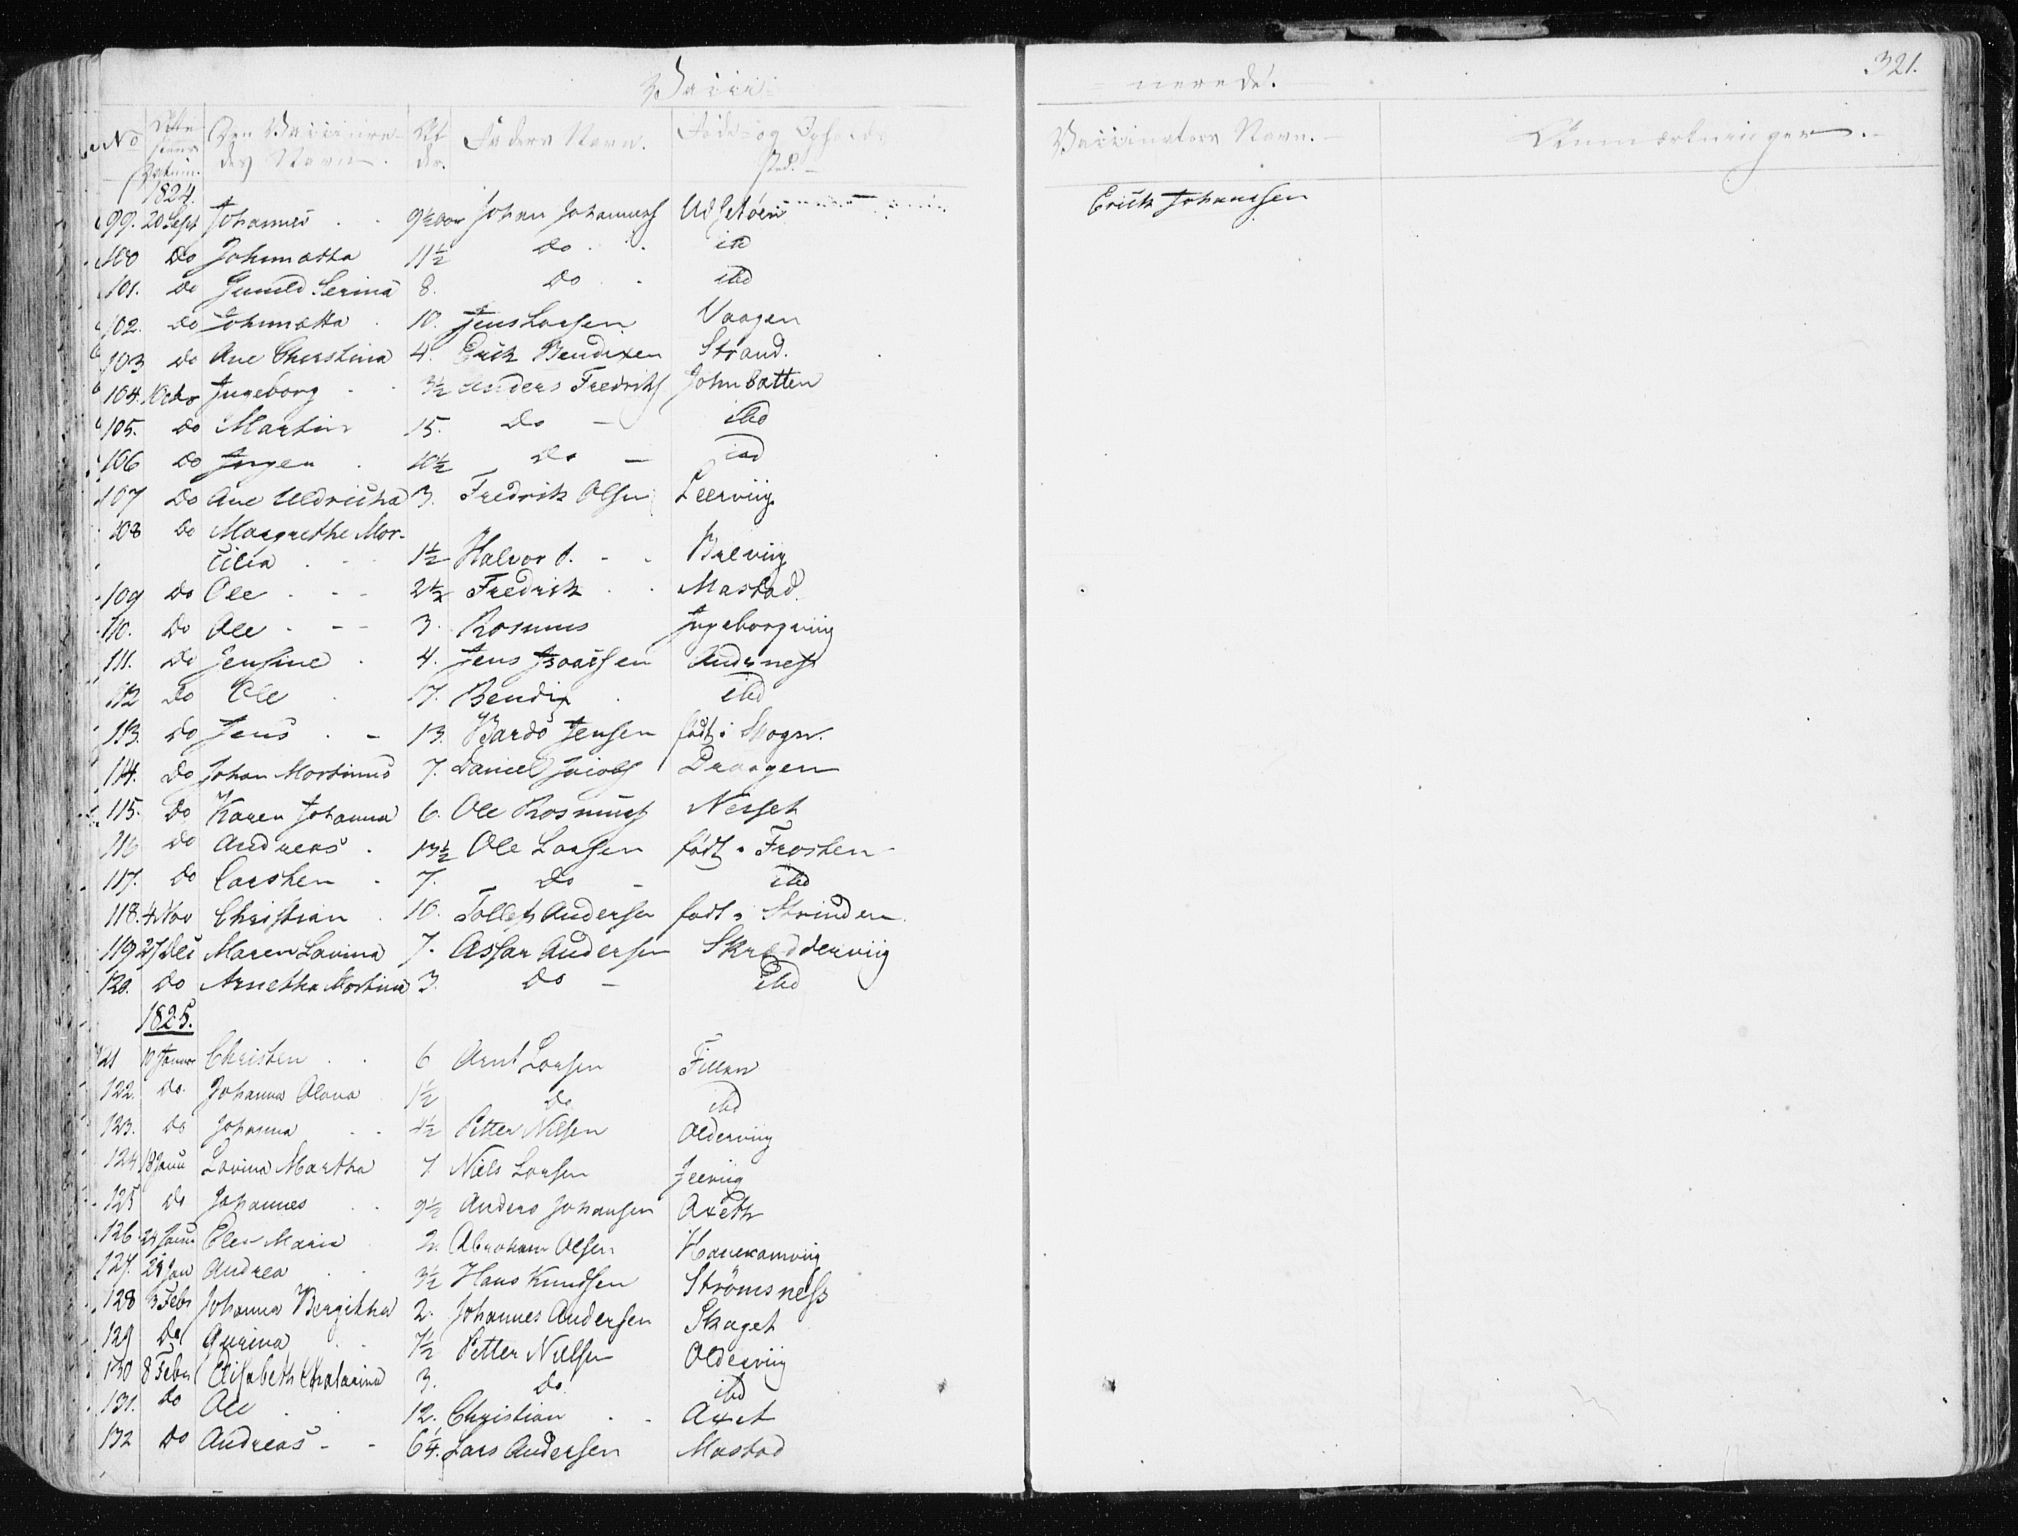 Vacci= =nerede. 321.
No Den Vaccinere- Al- Faders Navn. Føde- og Opholds Vaccinateurs Navn. Anmærkninger.
des Navn. der. Sted.
1824.
99. 20 Sept Johannes 9½ Aar Johan Johannesf Udsetøen Erick Johansen
100 Do Johnnætta 11½ Do ibd
101. Do Gunild Serina 8. Do ibd
102. Do Johnnætta 10. Jens Larsen Vaagen
103 Do Ane Cherstina 4. Erick Bendixen Strand.
104. Ingeborg 3½ Anders Fredriksf
105. Do Martin 15. Do ibd
106 Do Jørgen 10½ Do ibd
107 Do Ane Uldricha 3. Fredrik Olsen Leerviig
108 Do Margrethe Mar-
cilia 1½ Halvor
109 Do Ole 2½ Fredrik Mastad.
110. Do Ole 3. Rasmus Ingeborgviig
111. Do Jensine 4. Jens Isaacsen
112 Do Ole 17. Bendix ibd
113. Do Jens 13. Bardo Jensen født i Skogn.
114. Do Johan Martinus 7. Daniel Jacobsf Draagen
115. Do Karen Johanna 6. Ole Rasmusf Nesset
116 Do Andreas 13½ Ole Larsen født i Frosten
117. Do Carsten 7. Do ibd
118. 4 Nov Christian 10. Tollef Andersen født i Strinden
119 27 Dec Maren Lovina 7. Assar Andersen Skrædderviig
120. Do Arnetha Martina 3. Do ibd
1825.
121 10 Januar Christen 6 Arnt Larsen Fillan
122. Do Johanna Olava 1½ Do ibd
123. Do Johanna 4½ Petter Nilsen Olderviig
124 18 Janu Lovina Martha 7 Niels Larsen
125 Do Johannes 9½ Anders Johansen Axeth
126. Janu Elen Maria 2. Abraham Olsen Hanekamviig
127. 28 Jan Andrea 3½ Hans Knudsen Strømsness
128 3 Febr Johanna Bergitha 2. Johannes Andersen Skaget
129 Do Gurina 7½ Petter Nielsen Olderviig
130 8 Febr Elisabeth Chatarina 3. Do. ibd
131. Do Ole 12. Christian Axet
132 Do Andreas 6¼. Lars Andersen Mastad